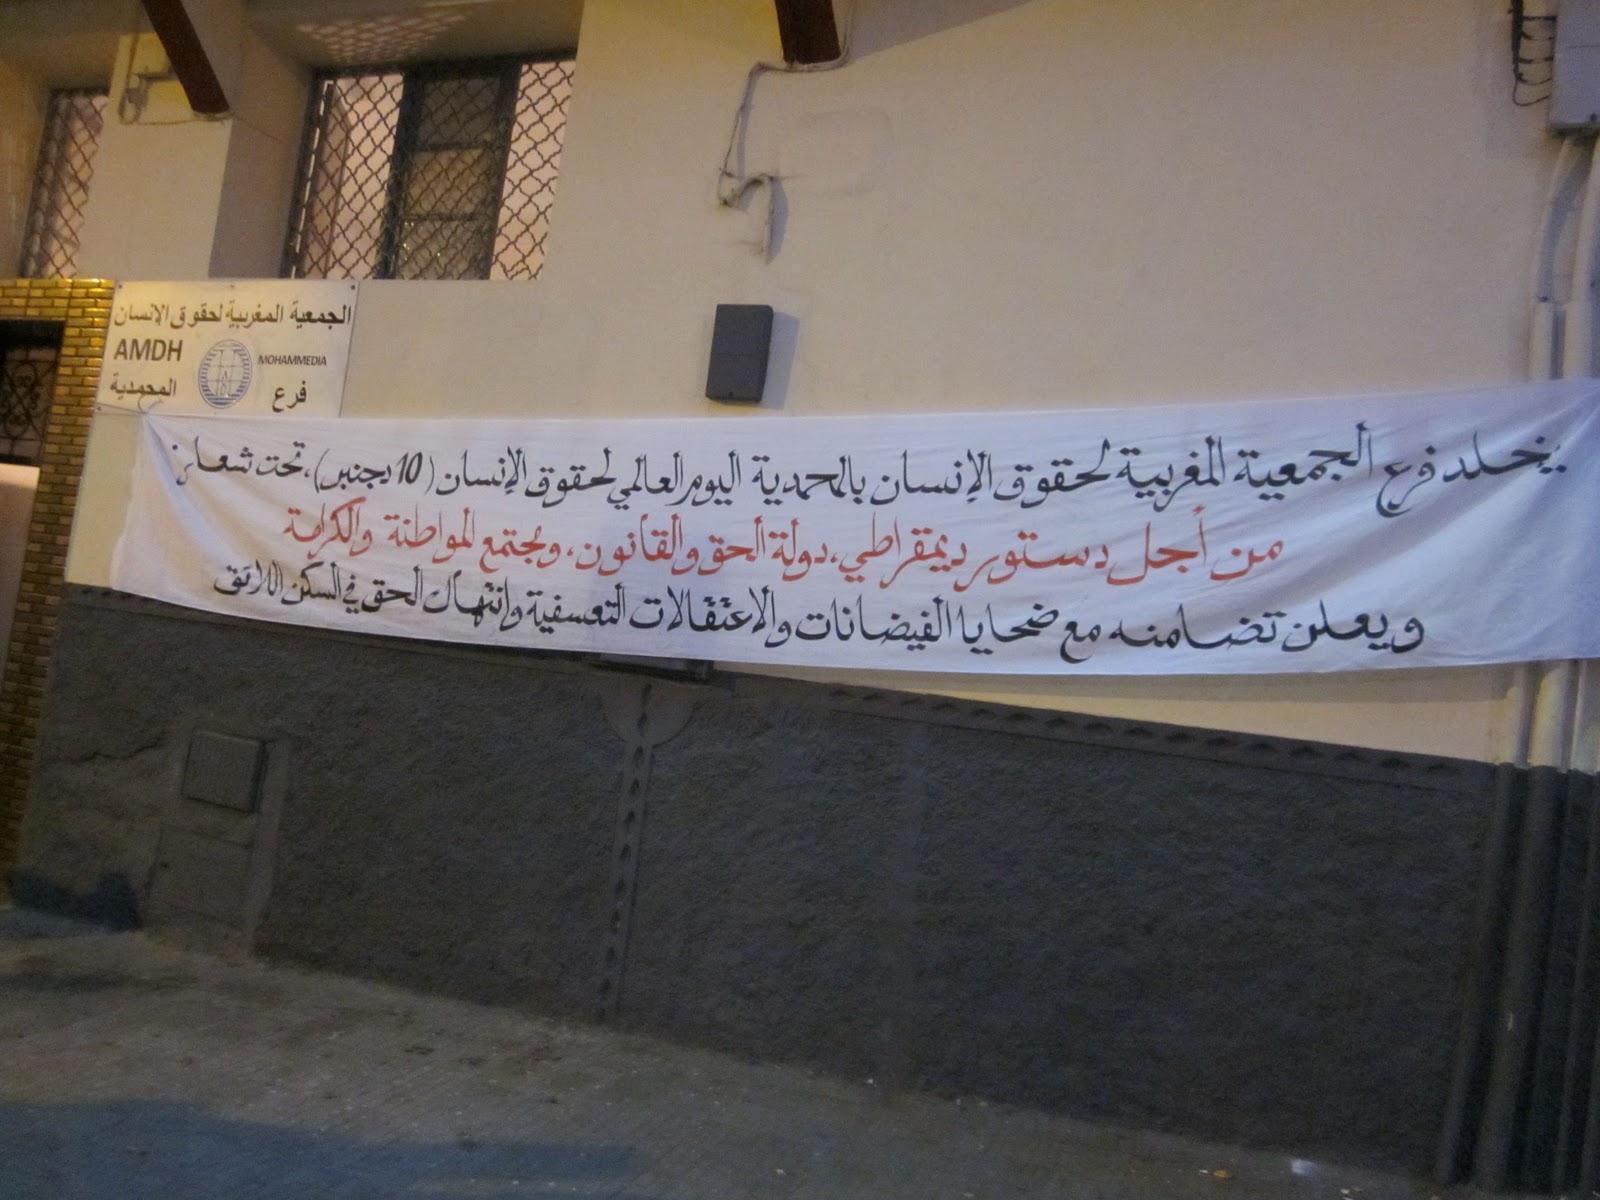 الجمعية المغربية لحقوق الإنسان
AMDH
MOHAMMEDIA
فرع
المحمدية
يخلد فرع الجمعية المغربية لحقوق الإنسان بالمحمدية اليوم العالمي لحقوق الإنسان (10 دجنبر)، تحت شعار:
من أجل دستور ديمقراطي، دولة الحق والقانون، ومجتمع المواطنة والكرامة
ويعلن تضامنه مع ضحايا الفيضانات والاعتقالات التعسفية وانتهاك الحق في السكن اللائق